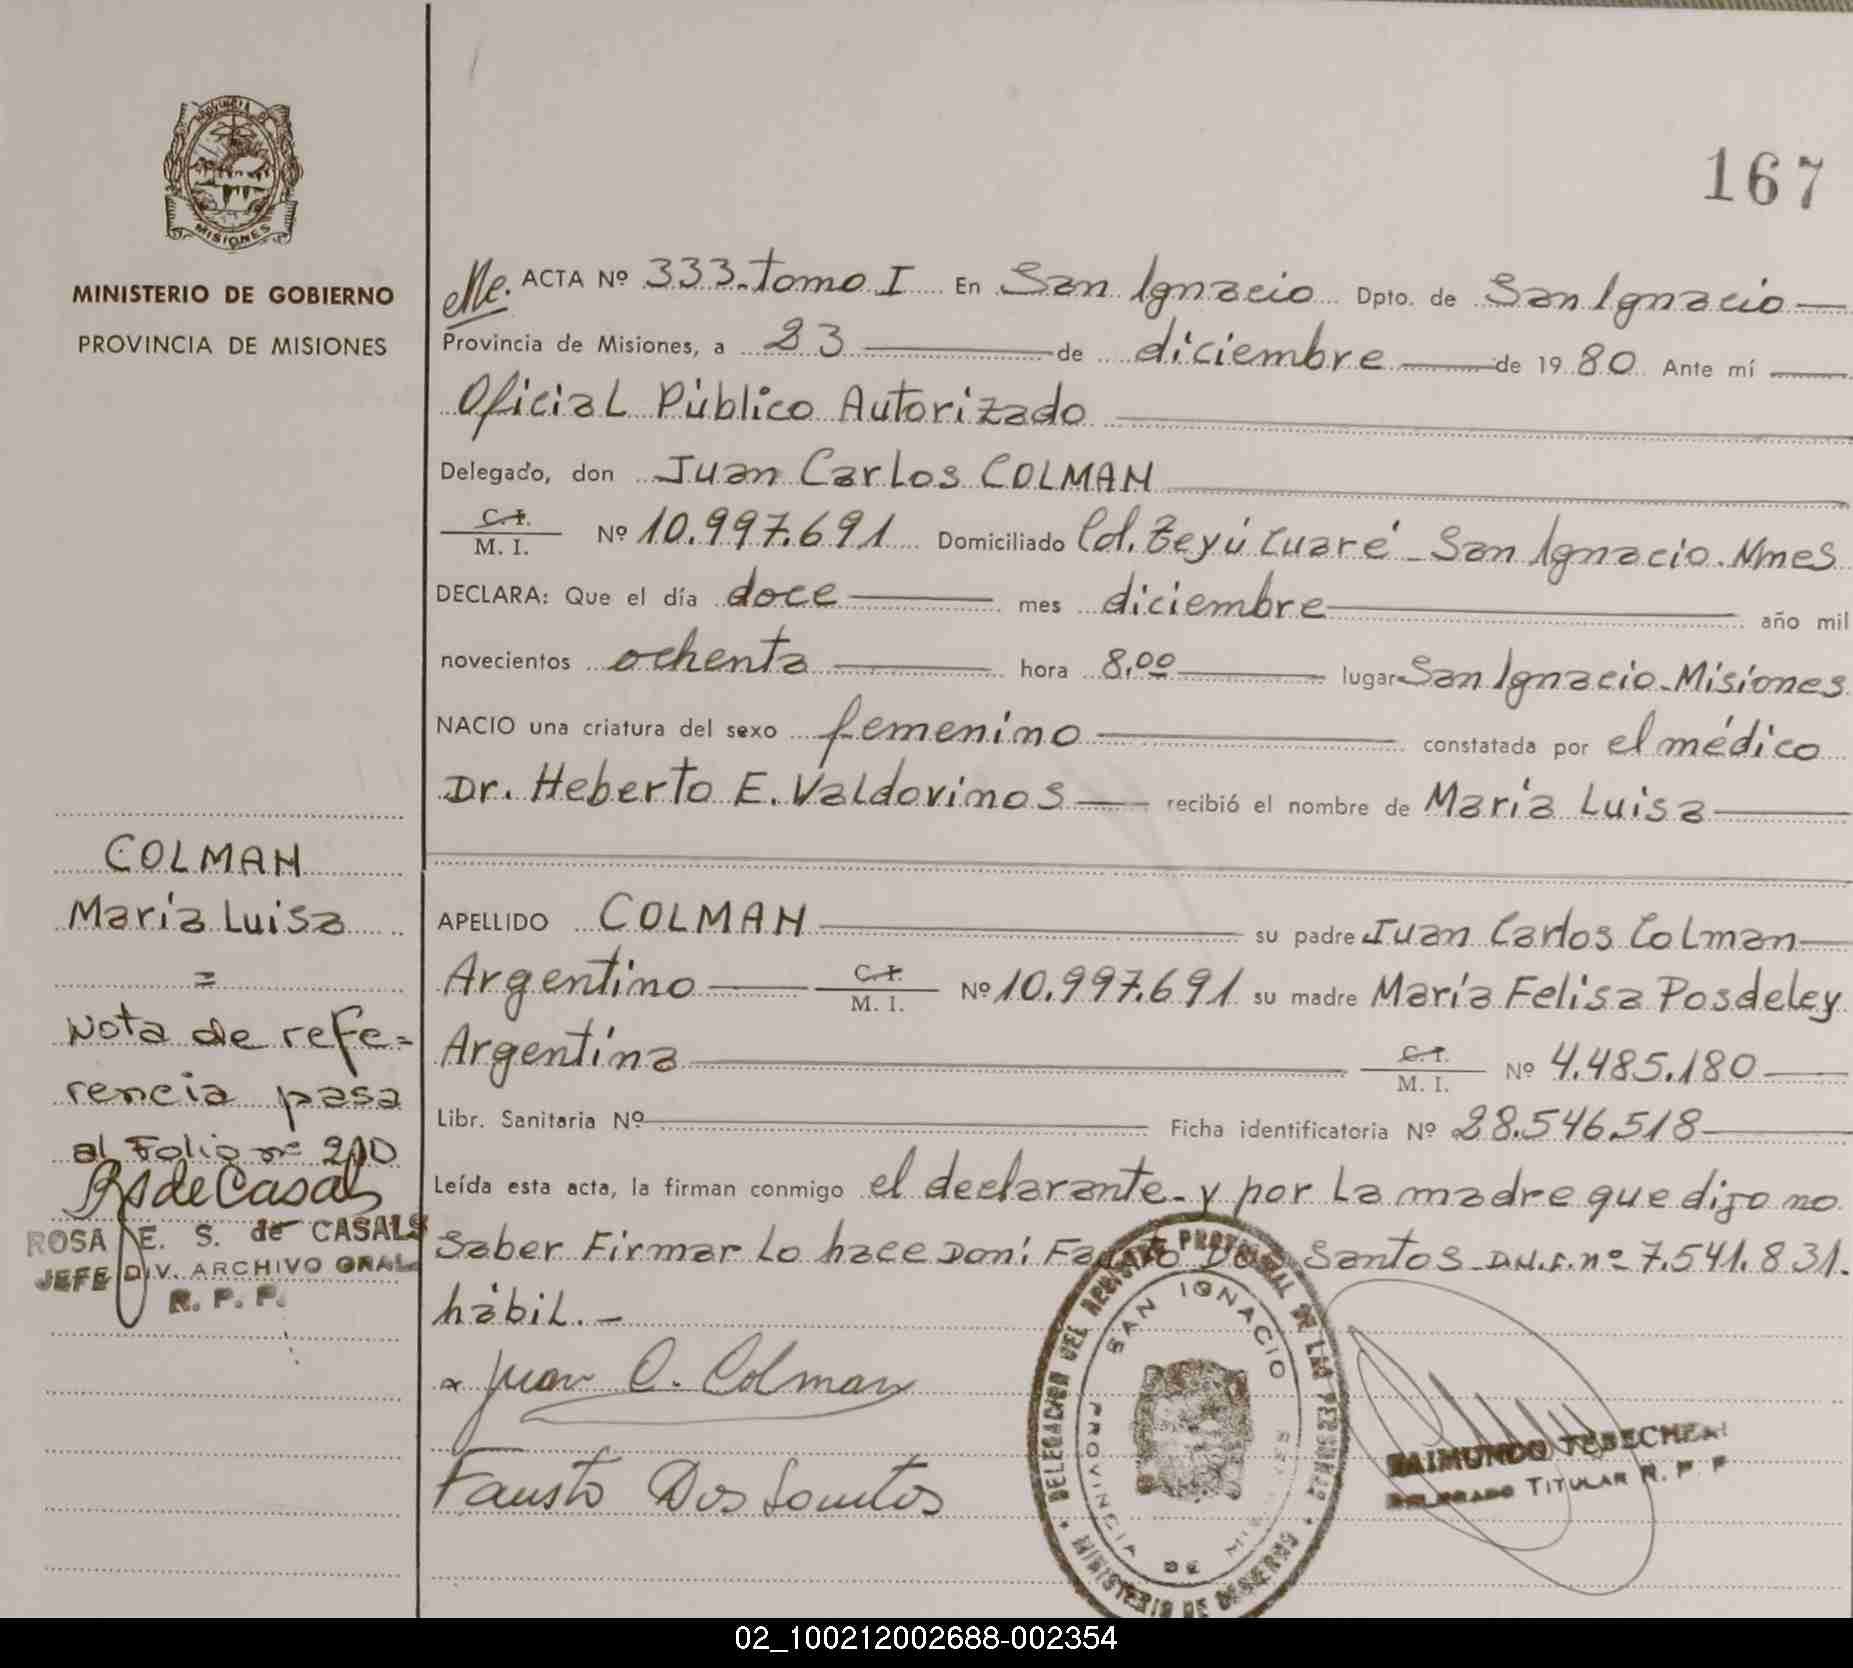 PROVINCIA DE
MISIONES
MINISTERIO DE GOBIERNO
PROVINCIA DE MISIONES
167
Me. ACTA Nº 333-tomo I En San Ignacio Dpto. de San Ignacio
Provincia de Misiones, a 23 de diciembre de 1980 Ante mí
Oficial Público Autorizado
Delegado, don Juan Carlos COLMAN
C.I.
M. I. Nº 10.997.691 Domiciliado Cd. Teyú Cuaré - San Ignacio. Mnes
DECLARA: Que el día doce mes diciembre año mil
novecientos ochenta hora 8,00 lugar San Ignacio-Misiones
NACIO una criatura del sexo femenino constatada por el médico
Dr. Heberto E. Valdovinos recibió el nombre de María Luisa
APELLIDO COLMAN su padre Juan Carlos Colman
Argentino C.I.
M. I. Nº 10.997.691 su madre María Felisa Posdeley
Argentina C.I.
M. I. Nº 4.485.180
Libr. Sanitaria Nº Ficha identificatoria Nº 28.546.518
Leída esta acta, la firman conmigo el declarante - y por la madre que dijo no
saber Firmar lo hace Don: Fausto Dos Santos D.N.I. nº 7.541.831.
hábil.-
Juan C. Colman
Fausto Dos Santos
COLMAN
María Luisa
=
Nota de refe=
rencia pasa
al Folio nº 210
RSdeCasals
ROSA E. S. de CASALS
JEFE DIV. ARCHIVO GRAL.
R. P. P.
DELEGACION DEL REGISTRO PROVINCIAL DE LAS PERSONAS
MINISTERIO DE GOBIERNO
SAN IGNACIO
PROVINCIA DE MISIONES
RAIMUNDO
DELEGADO TITULAR R. P. P
02_100212002688-002354